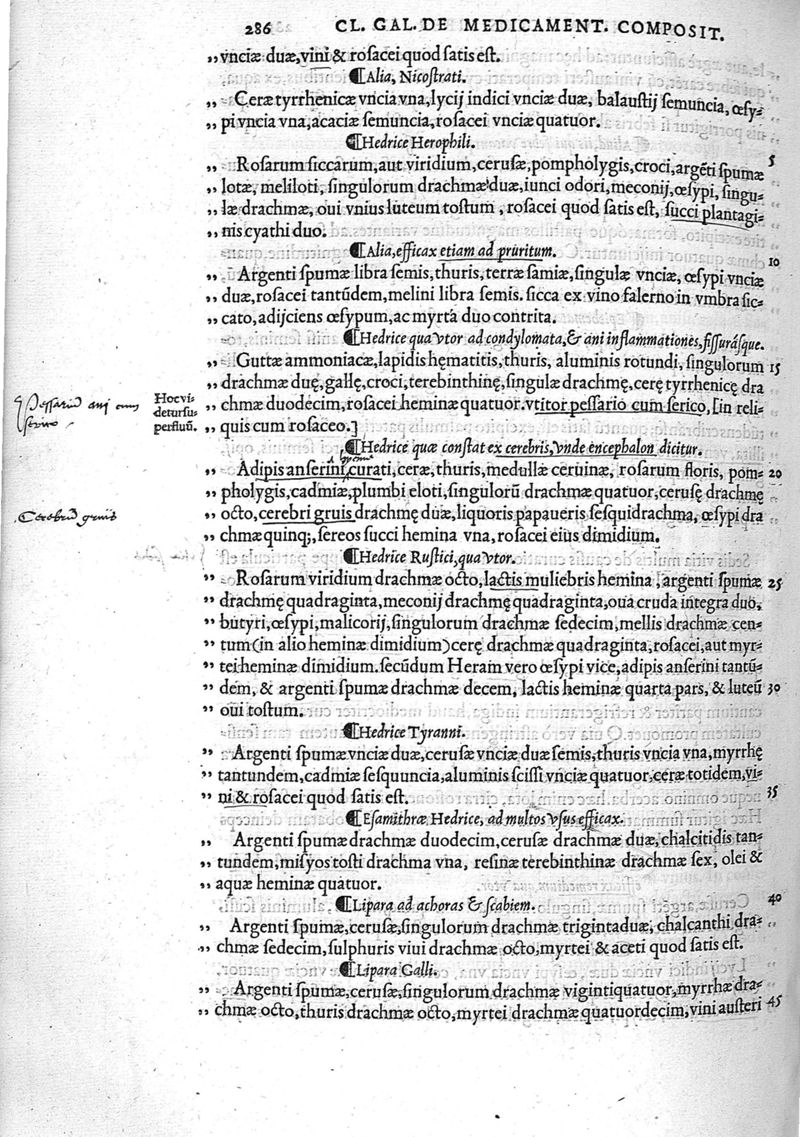 286 CL. GAL. DE MEDICAMENT. COMPOSIT.
„ vnciæ duæ, vini & rosacei quod satis est.
¶Alia, Nicostrati.
„ Ceræ tyrrhenicæ vncia vna, lycij indici vnciæ duæ, balaustij semuncia, œsy-
„ pi vncia vna, acaciæ semuncia, rosacei vnciæ quatuor.
¶Hedrice Herophili.
5
„ Rosarum siccarum, aut viridium, cerusæ, pompholygis, croci, argēti spumæ
„ lotæ, meliloti, singulorum drachmæ duæ, iunci odori, meconij, œsypi, singu-
„ læ drachmæ, oui vnius luteum tostum, rosacei quod satis est, succi plantagi-
„ nis cyathi duo.
¶Alia, efficax etiam ad pruritum. 10
„ Argenti spumæ libra semis, thuris, terræ samiæ, singulæ vnciæ, œsypi vnciæ
„ duæ, rosacei tantūdem, melini libra semis. sicca ex vino falerno in vmbra sic-
„ cato, adijciens œsypum, ac myrta duo contrita.
¶Hedrice qua vtor ad condylomata, & ani inflammationes, fissurásque.
„ Guttæ ammoniacæ, lapidis hęmatitis, thuris, aluminis rotundi, singulorum 15
„ drachmæ duę, gallę, croci, terebinthinę, singulæ drachmę, cerę tyrrhenicę dra
Pessariū ani cum
Hoc vi-
„ chmæ duodecim, rosacei heminæ quatuor. vtitor pessario cum serico, [in reli-
detur su-
perfluū.
„ quis cum rosaceo.]
¶Hedrice quæ constat ex cerebris, vnde encephalon dicitur.
„ Adipis anserini curati, ceræ, thuris, medullæ ceruinæ, rosarum floris, pom- 20
„ pholygis, cadmiæ, plumbi eloti, singulorū drachmæ quatuor, cerusę drachmę
Cerebrū gruis
„ octo, cerebri gruis drachmę duæ, liquoris papaueris sesquidrachma, œsypi dra
„ chmæ quinq;, sereos succi hemina vna, rosacei eius dimidium.
¶Hedrice Rustici, qua vtor.
„ Rosarum viridium drachmæ octo, lactis muliebris hemina, argenti spumæ 25
„ drachmę quadraginta, meconij drachmę quadraginta, oua cruda integra duo,
„ butyri, œsypi, malicorij, singulorum drachmæ sedecim, mellis drachmæ cen-
„ tum (in alio heminæ dimidium) cerę drachmæ quadraginta, rosacei, aut myr-
„ tei heminæ dimidium. secūdum Heram vero œsypi vice, adipis anserini tantū-
„ dem, & argenti spumæ drachmæ decem, lactis heminæ quarta pars, & luteū 30
„ oui tostum.
¶Hedrice Tyranni.
„ Argenti spumæ vnciæ duæ, cerusæ vnciæ duæ semis, thuris vncia vna, myrrhę
„ tantundem, cadmiæ sesquuncia, aluminis scissi vnciæ quatuor, ceræ totidem, vi-
„ ni & rosacei quod satis est. 35
¶Esamithræ Hedrice, ad multos vsus efficax.
„ Argenti spumæ drachmæ duodecim, cerusæ drachmæ duæ, chalcitidis tan-
„ tundem, misyos tosti drachma vna, resinæ terebinthinæ drachmæ sex, olei &
„ aquæ heminæ quatuor.
¶Lipara ad achoras & scabiem. 40
„ Argenti spumæ, cerusæ, singulorum drachmæ trigintaduæ, chalcanthi dra-
„ chmæ sedecim, sulphuris viui drachmæ octo, myrtei & aceti quod satis est.
¶Lipara Galli.
„ Argenti spumæ, cerusæ, singulorum drachmæ vigintiquatuor, myrrhæ dra-
„ chmæ octo, thuris drachmæ octo, myrtei drachmæ quatuordecim, vini austeri 45